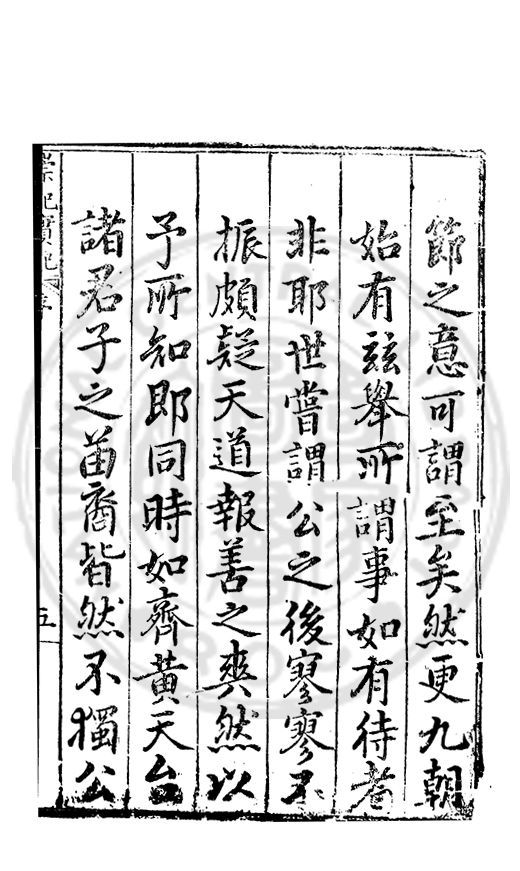 節之意可謂至矣然更九朝
始有玆舉所謂事如有待者
非耶世嘗謂公之後寥寥不
振頗疑天道報善之爽然以
予所知即同時如齊黃天台
諸君子之苗裔皆然不獨公
崇祀實紀
五